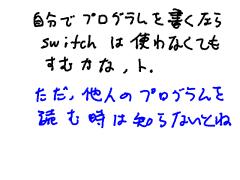 自分でプログラムを書くなら
switch は使わなくても
すむかな、ト.
ただ、他人のプログラムを
読む時は知らないとね